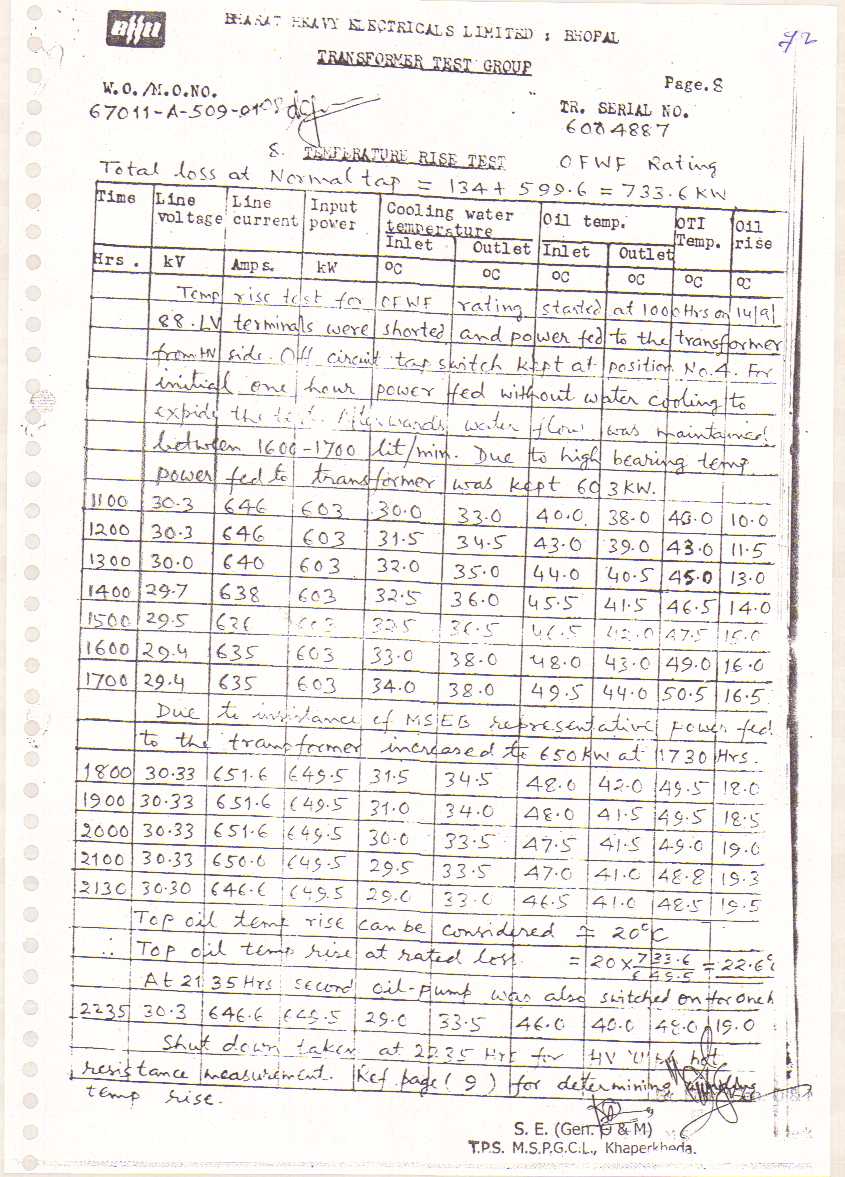 72
BHARAT HEAVY ELECTRICALS LIMITED : BHOPAL
TRANSFORMER TEST GROUP
Page.8
W.O./M.O.NO.
67011-A-509-01
TR. SERIAL NO.
6004887
8. TEMPERATURE RISE TEST OFWF Rating
Total loss at Normal tap = 134 + 599.6 = 733.6 KW
Time Line voltage Line current Input power Cooling water temperature Oil temp. OTI Temp. Oil rise
Inlet Outlet Inlet Outlet
Hrs. kV Amps. kW °C °C °C °C °C °C
Temp rise test for OFWF rating started at 1000 Hrs on 14/9/
88. LV terminals were shorted and power fed to the transformer
from HV side. Off circuit tap switch kept at position No.4. For
initial one hour power fed without water cooling to
expide the test. Afterwards water flow was maintained
between 1600-1700 lit/min. Due to high bearing temp
power fed to transformer was kept 603 KW.
1100 30.3 646 603 30.0 33.0 40.0 38.0 43.0 10.0
1200 30.3 646 603 31.5 34.5 43.0 39.0 43.0 11.5
1300 30.0 640 603 32.0 35.0 44.0 40.5 45.0 13.0
1400 29.7 638 603 32.5 36.0 45.5 41.5 46.5 14.0
1500 29.5 636 603 32.5 36.5 46.5 42.0 47.5 15.0
1600 29.4 635 603 33.0 38.0 48.0 43.0 49.0 16.0
1700 29.4 635 603 34.0 38.0 49.5 44.0 50.5 16.5
Due to insistance of MSEB representative power fed
to the transformer increased to 650 KW at 1730 Hrs.
1800 30.33 651.6 649.5 31.5 34.5 48.0 42.0 49.5 18.0
1900 30.33 651.6 649.5 31.0 34.0 48.0 41.5 49.5 18.5
2000 30.33 651.6 649.5 30.0 33.5 47.5 41.5 49.0 19.0
2100 30.33 650.0 649.5 29.5 33.5 47.0 41.0 48.8 19.3
2130 30.30 646.6 649.5 29.0 33.0 46.5 41.0 48.5 19.5
Top oil temp rise can be considered = 20°C
∴ Top oil temp rise at rated loss = 20 x 733.6 / 649.5 = 22.6°
At 2135 Hrs second oil-pump was also switched on for one h
2235 30.3 646.6 649.5 29.0 33.5 46.0 40.0 48.0 19.0
Shut down taken at 2235 Hrs for HV hot
resistance measurement. Ref. page (9) for determining winding
temp rise.
S. E. (Gen. O & M)
T.P.S. M.S.P.G.C.L., Khaperkheda.